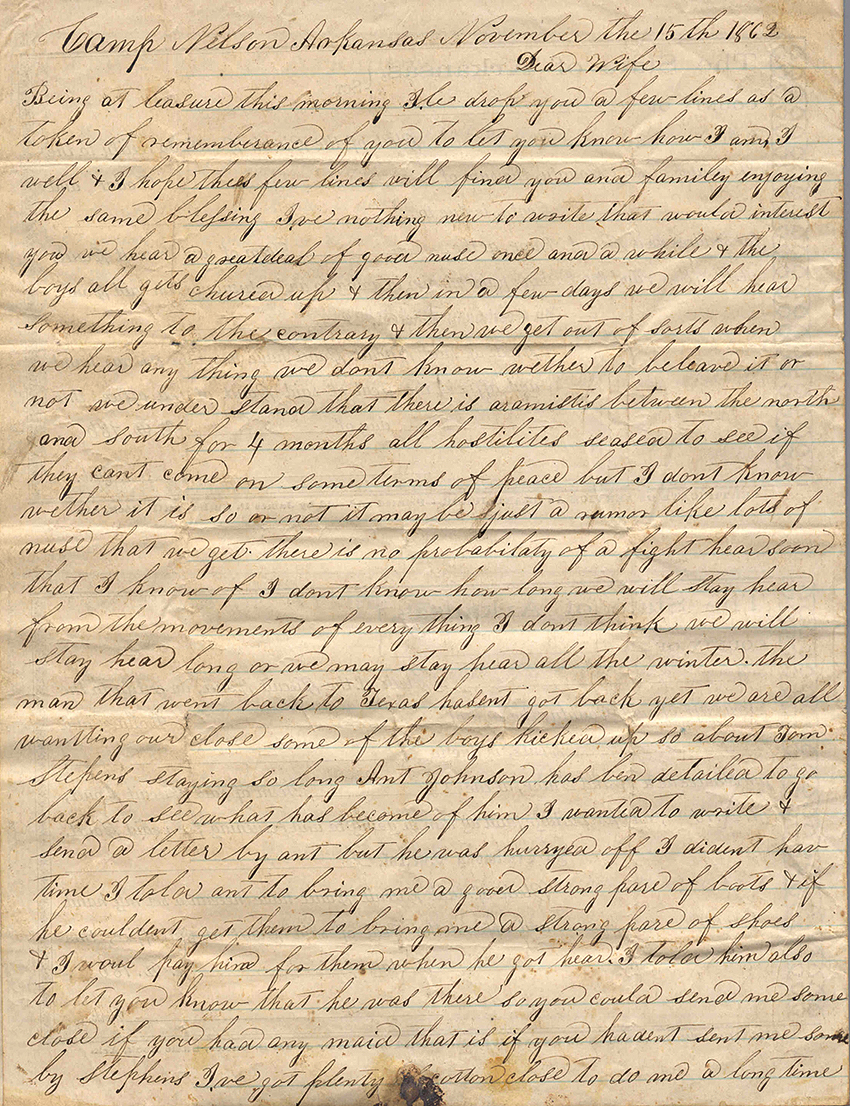 Camp Nelson Arkansas November the 15th 1862
Dear Wife
Being at leasure this morning I le drop you a few lines as a
token of rememberance of you to let you know how I am, I
well & I hope thees few lines will find you and familey enjoying
the same blessing I,ve nothing new to write that would interest
you we hear a great deal of good nuse once and a while & the
boys all gets chured up & then in a few days we will hear
something to the contrary & then we get out of sorts when
we hear any thing we dont know wether to beleave it or
not we under stand that there is aramistis between the north
and south for 4 months all hostilites seased to see if
they cant come on some terms of peace but I dont know
wether it is so or not it may be just a rumor like lots of
nuse that we get. there is no probabilaty of a fight hear soon
that I know of I dont know how long we will stay hear
from the movements of every thing I dont think we will
stay hear long or we may stay hear all the winter. the
man that went back to Texas hasent got back yet we are all
wantting our close some of the boys kicked up so about Tom
Stephens staying so long Ant Johnson has ben detailed to go
back to see what has become of him I wanted to write &
send a letter by ant but he was hurryed off I dident hav
time I told ant to bring me a good strong pare of boots & if
he couldent get them to bring me a strong pare of shoes
& I woul pay him for them when he got hear. I told him also
to let you know that he was there so you could send me some
close if you had any maid that is if you hadent sent me some
by Stephens I,ve got plenty cotton close to do me a long time